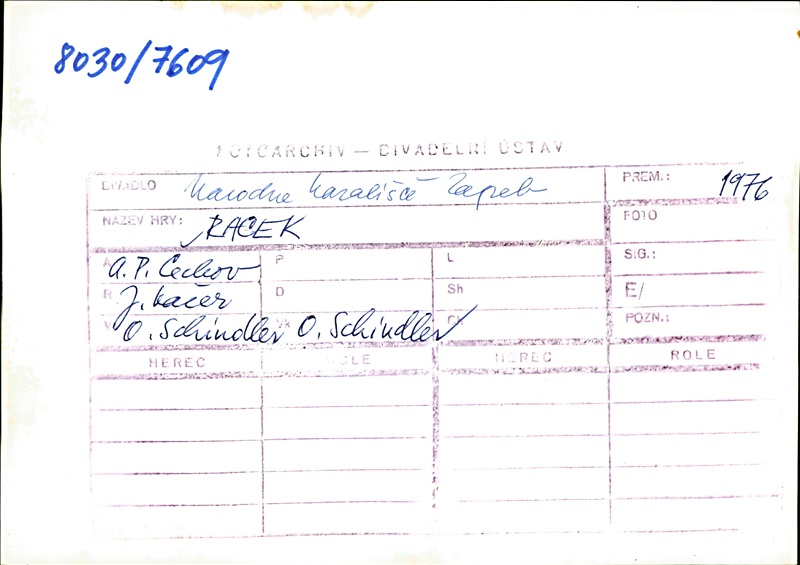 8030/7609
FOTOARCHIV — DIVADELNÍ ÚSTAV
DIVADLO Narodne Kazališče Zagreb PREM.: 1976
NÁZEV HRY: RACEK FOTO
A A.P. Čechov P L SIG.:
R J. Kačer D Sh E/
V O. Schindler Vk O. Schindler POZN.:
HEREC ROLE HEREC ROLE